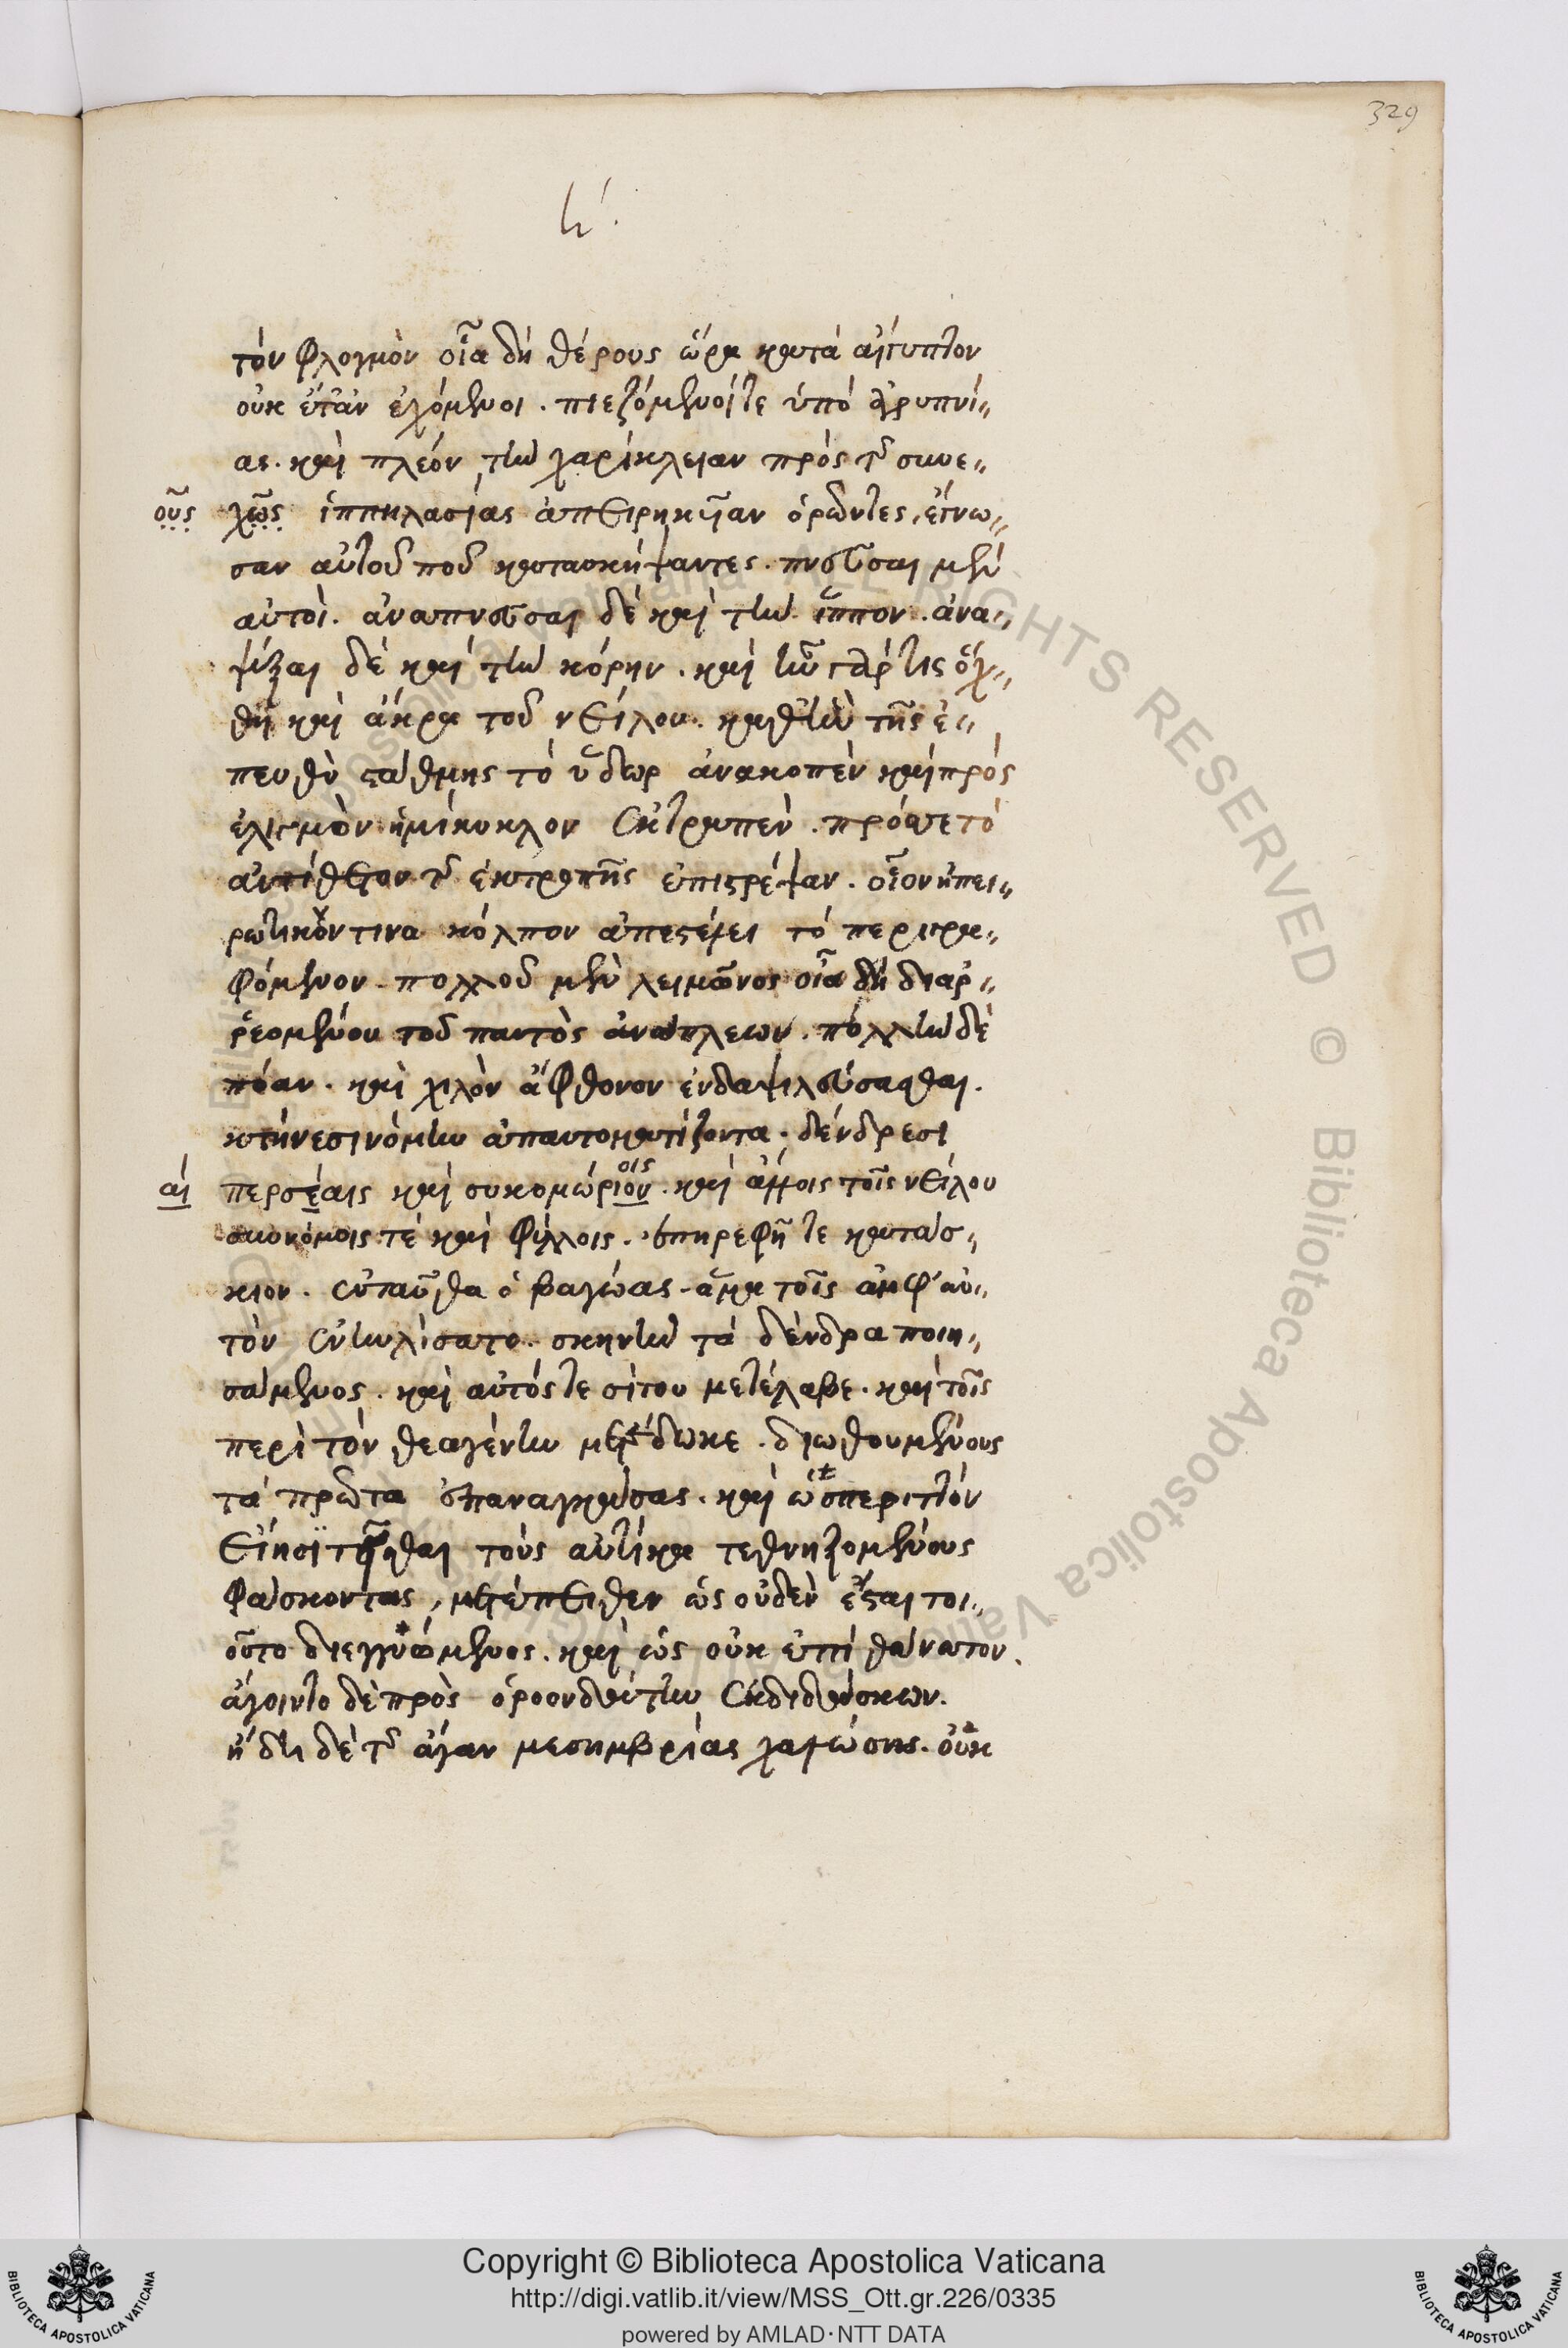 329
η΄.
τὸν φλογμὸν οἷα δὴ θέρους ὥρα κατὰ αἴγυπτον
οὐκ ἔτ' ἀνεχόμενοι. πιεζόμενοί τε ὑπὸ ἀγρυπνί
ας. καὶ πλέον τὴν χαρίκλειαν πρὸς τῆς συνε
οῦς χῶς ἱππηλασίας ἀπειρηκυῖαν ὁρῶντες, ἔγνω
σαν αὐτοῦ που κατασκήψαντες. πνεῦσαι μὲν
αὐτοὶ. ἀναπνεῦσαι δὲ καὶ τὴν ἵππον. ἀνα
ψύξαι δὲ καὶ τὴν κόρην. καὶ ἦν γάρ τις ὄχ
θη καὶ ἄκρα τοῦ νείλου. καθ' ἣν τῆς ἐ
πευθὺ στάθμης τὸ ὕδωρ ἀνακοπὲν καὶ πρὸς
ἑλιγμὸν ἡμίκυκλον ἐκτραπὲν. πρός τε τὸ
ἀντίθετον τῆς ἐκτροπῆς ἐπιστρέψαν. οἷον ἠπει
ρωτικόν τινα κόλπον ἀπεστεψει τὸ περιγρα
φόμενον. πολλοῦ μὲν λειμῶνος οἷα δὴ διαρ
ρεομένου τοῦ παντὸς ἀνάπλεων. πολλὴν δὲ
πόαν. καὶ χιλὸν ἄφθονον ἐνδαψιλεύσασθαι.
κτήνεσι νομὴν ἀπαυτοματίζοντα. δένδρεσι
αί περσέαις καὶ συκομώριον οις. καὶ ἄλλοις τοῖς νείλου
συννόμοις τὲ καὶ φίλλοις. ἐπηρεφῆ τε κατάσ
κιον. ἐνταῦθα ὁ βαγώας ἅμα τοῖς ἀμφ' αὐ
τὸν ἐνηυλίσατο. σκηνὴν τὰ δένδρα ποιη
σάμενος. καὶ αὐτός τε σίτου μετέλαβε. καὶ τοῖς
περὶ τὸν θεαγένην μετέδωκε. διωθουμένους
τὰ πρῶτα ἐπαναγκάσας. καὶ ὡς περιττὸν
εἴη σϊτεῖσθαι τοὺς αὐτίκα τεθνηξομένους
φάσκοντας, μετέπειθεν ὡς οὐδὲν ἔσται τοι
οῦτο διεγγυώμενος. καὶ ὡς οὐκ ἐπὶ θάνατον
ἄγοιντο δὲ πρὸς ὀροονδάτην ἐκδιδάσκων.
ἤδη δὲ τῆς ἄγαν μεσημβρίας χαλώσης. οὐκ
Copyright © Biblioteca Apostolica Vaticana
http://digi.vatlib.it/view/MSS_Ott.gr.226/0335
powered by AMLAD·NTT DATA